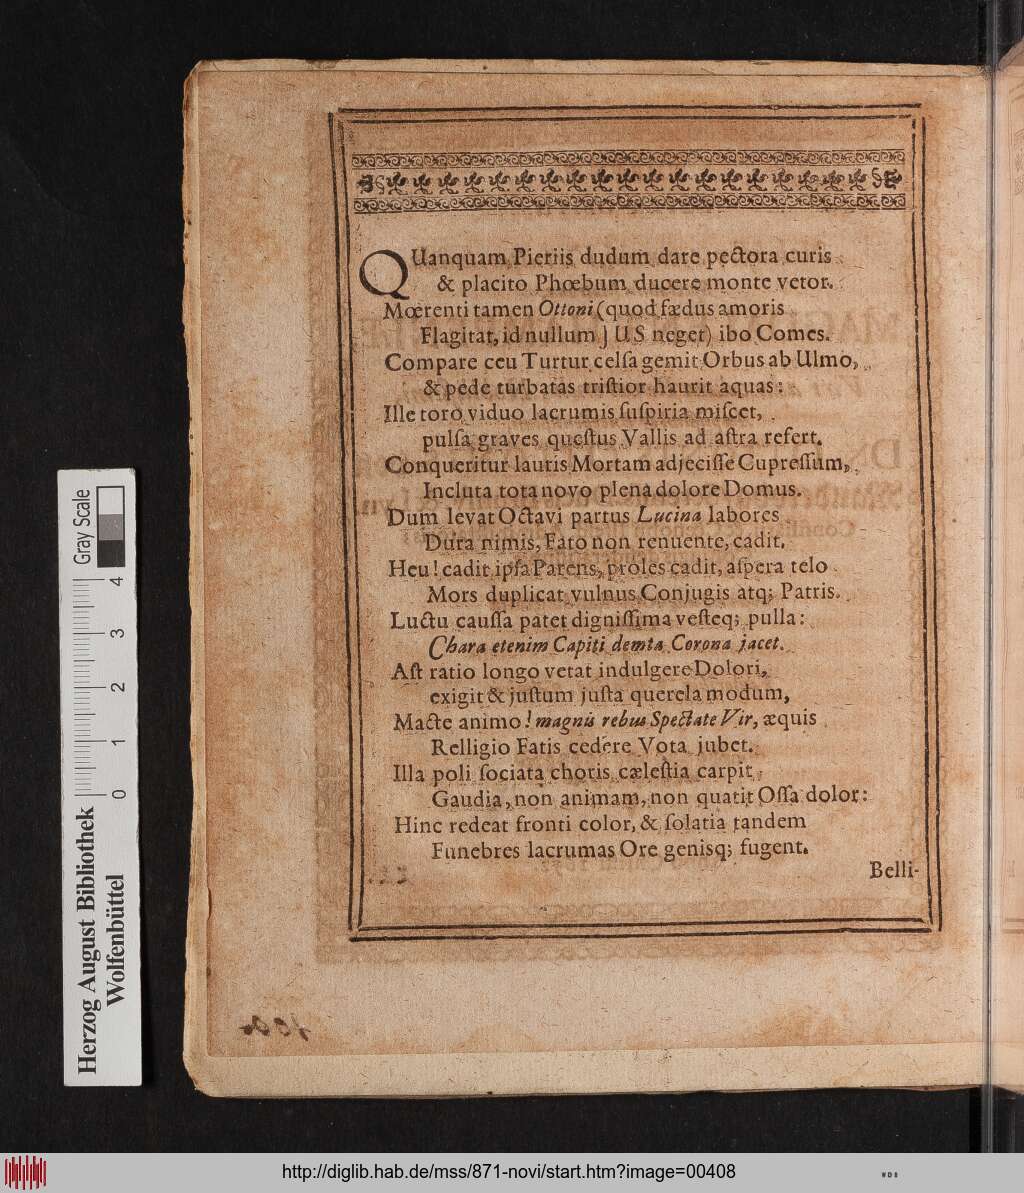 QUanquam Pieriis dudum dare pectora curis
& placito Phœbum ducere monte vetor.
Mœrenti tamen Ottoni (quod fædus amoris
Flagitat, id nullum JUS neget) ibo Comes.
Compare ceu Turtur celſa gemit Orbus ab Ulmo,
& pede turbatas triſtior haurit aquas:
Ille toro viduo lacrumis ſuſpiria miſcet,
pulſa graves queſtus Vallis ad aſtra refert.
Conqueritur lauris Mortam adjeciſſe Cupreſſum,
Incluta tota novo plena dolore Domus.
Dum levat Octavi partus Lucina labores
Dura nimis, Fato non renuente, cadit.
Heu! cadit ipſa Parens, proles cadit, aſpera telo
Mors duplicat vulnus Conjugis atq; Patris.
Luctu cauſſa patet digniſſima veſteq; pulla:
Chara etenim Capiti demta Corona jacet.
Aſt ratio longo vetat indulgere Dolori,
exigit & juſtum juſta querela modum,
Macte animo! magnis rebus Spectate Vir, æquis
Relligio Fatis cedere Vota jubet.
Illa poli ſociata choris cæleſtia carpit
Gaudia, non animam, non quatit Oſſa dolor:
Hinc redeat fronti color, & ſolatia tandem
Funebres lacrumas Ore genisq; fugent.
Belli-
Gray Scale
0 1 2 3 4
Herzog August Bibliothek
Wolfenbüttel
http://diglib.hab.de/mss/871-novi/start.htm?image=00408